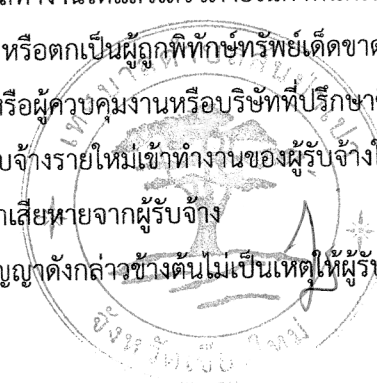 หรือตกเป็นผู้ถูกพิทักษ์ทรัพย์เด็ดขาด
หรือผู้ควบคุมงานหรือบริษัทที่ปรึกษา
บจ้างรายใหม่เข้าทำงานของผู้รับจ้างใ
าเสียหายจากผู้รับจ้าง
ญญาดังกล่าวข้างต้นไม่เป็นเหตุให้ผู้รับ
จังหวัดเชียงใหม่